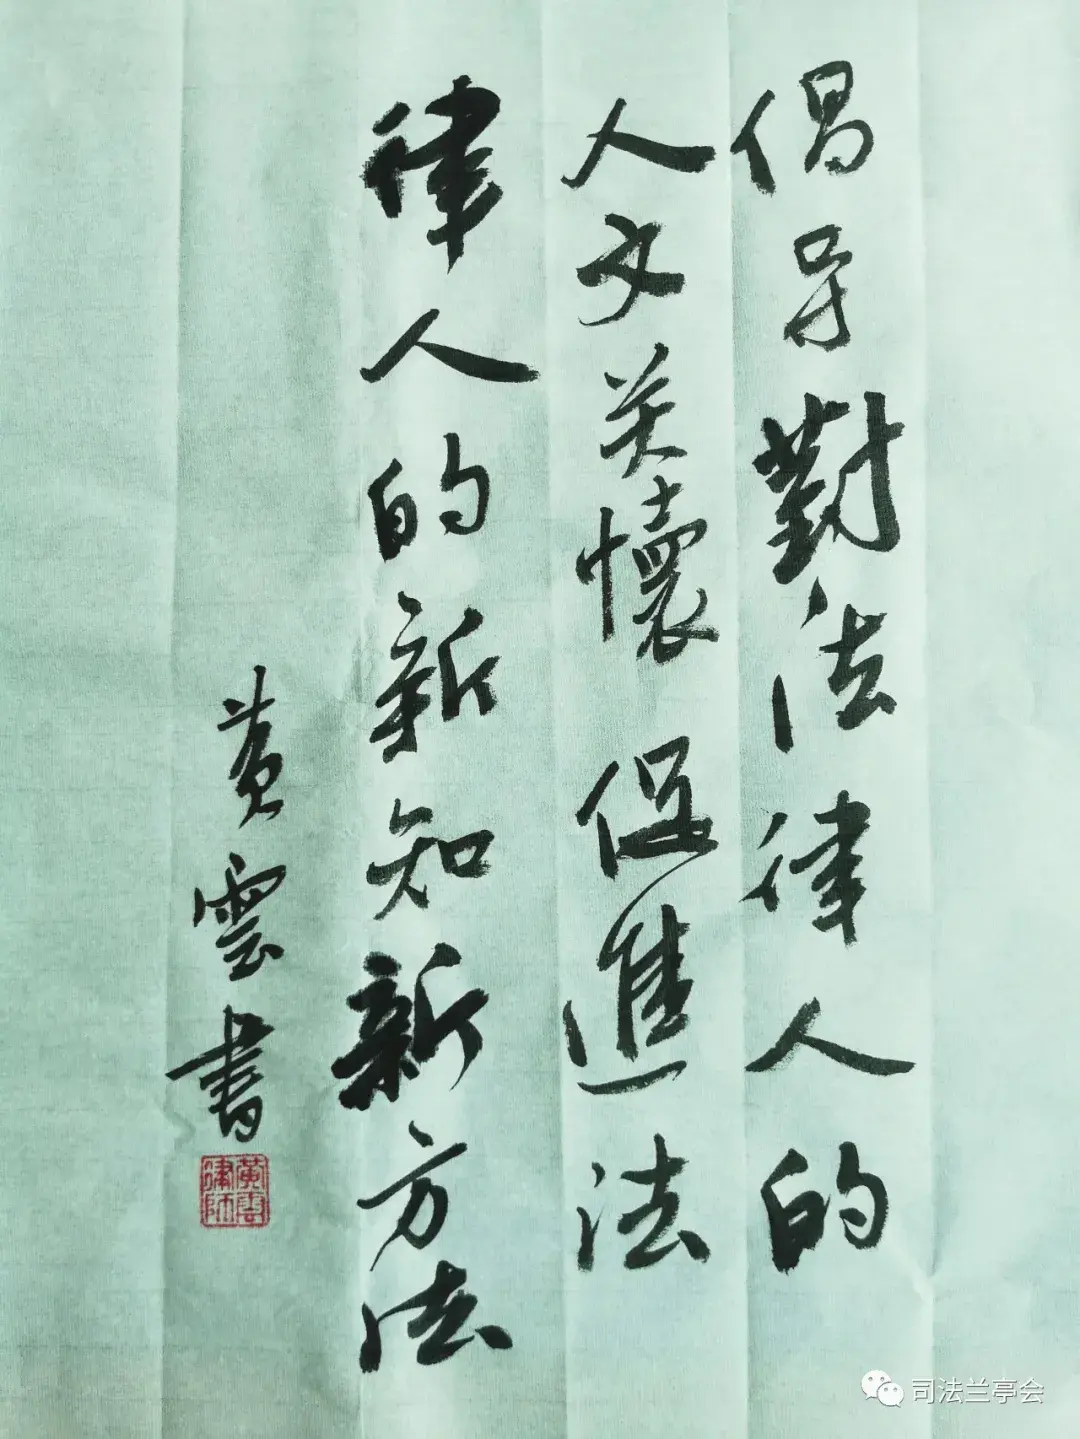 倡导對法律人的
人文关懷促進法
律人的新知新方法
黄雲書
黃雲律師
司法兰亭会